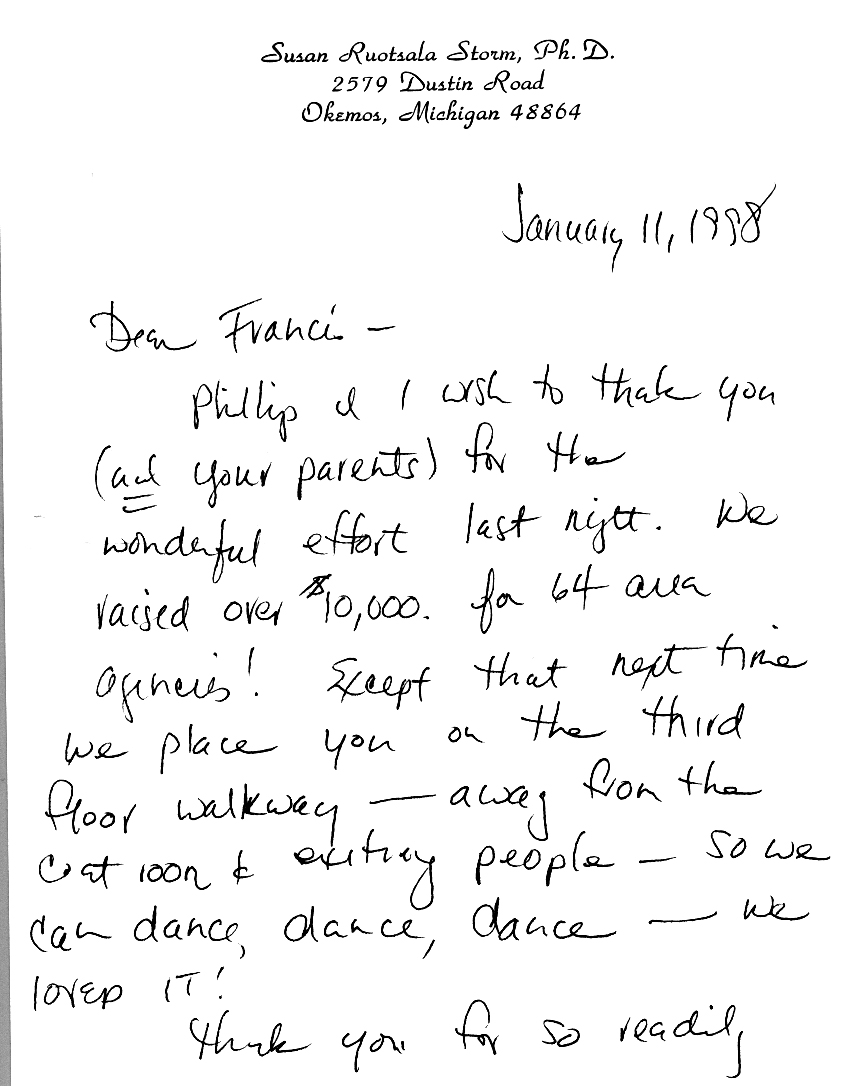 Susan Ruotsala Storm, Ph. D.
2579 Dustin Road
Okemos, Michigan 48864
January 11, 1998
Dear Francis —
Phillip & I wish to thank you
(and your parents) for the
wonderful effort last night. We
raised over $10,000. for 64 area
agencies! Except that next time
we place you on the third
floor walkway — away from the
coat room & exiting people — so we
can dance, dance, dance — we
loved IT!
Thank you for so readily